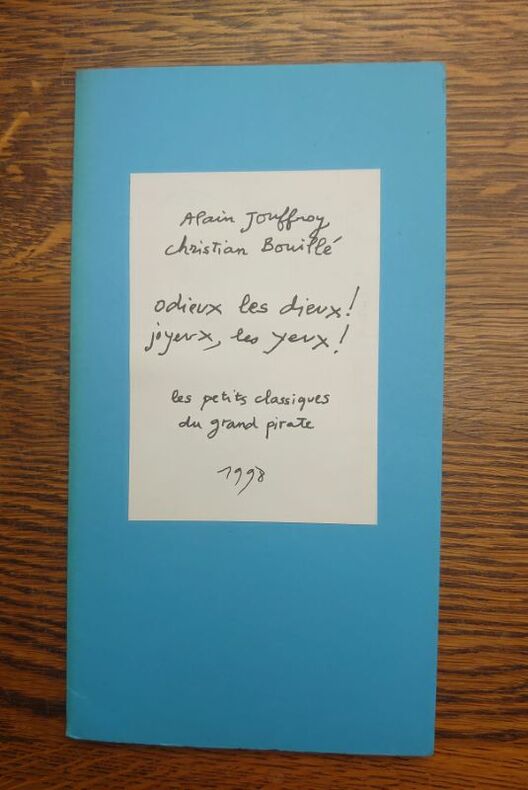 Alain Jouffroy
Christian Bouillé
odieux les dieux!
joyeux, les yeux!
les petits classiques
du grand pirate
1998